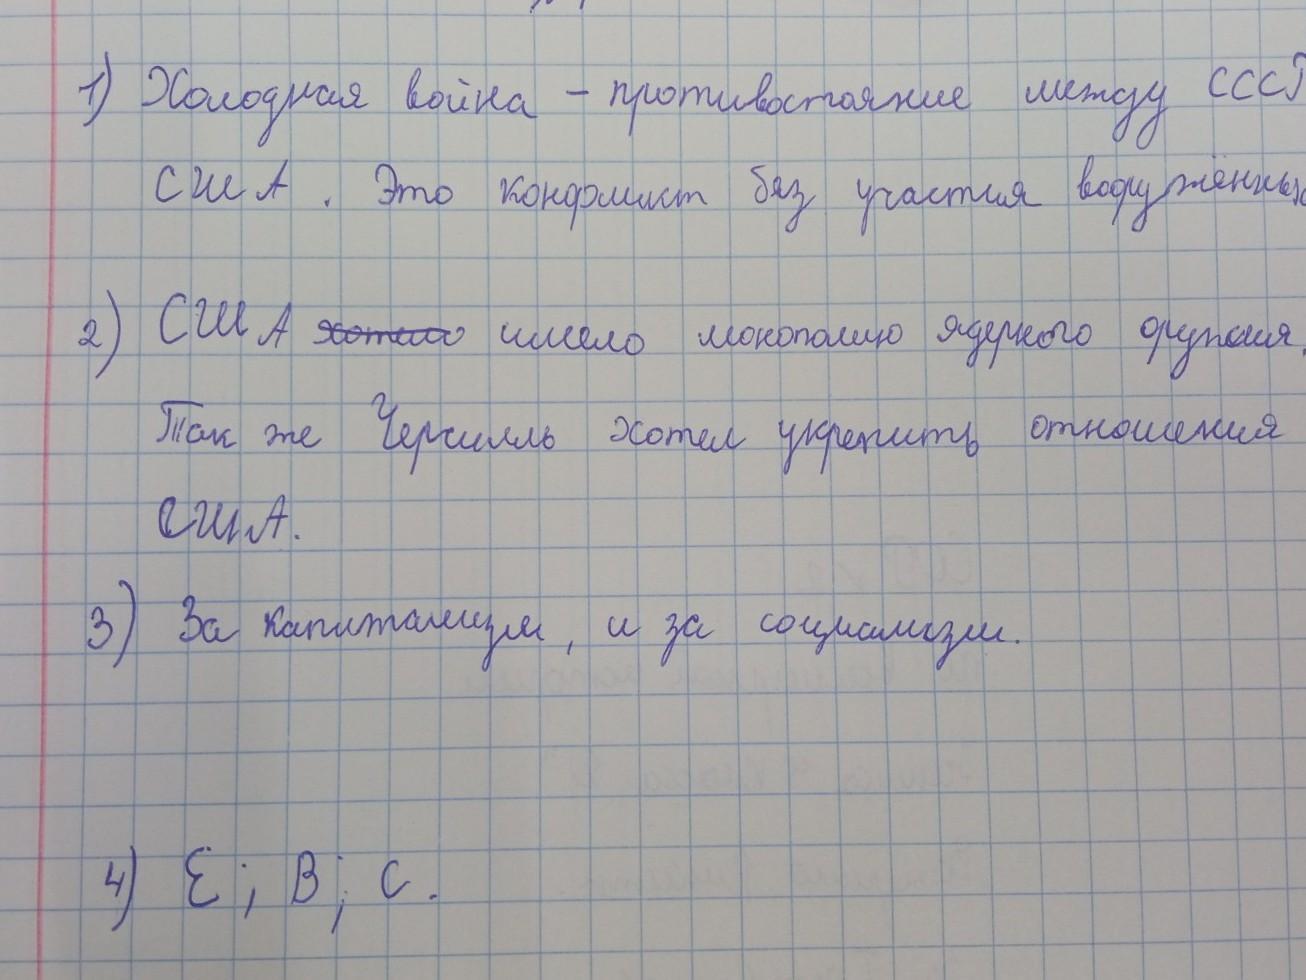 1) Холодная война - противостояние между СССР
США. Это конфликт без участия вооружённых
2) США хотело имело монополию ядерного оружия.
Так же Черчилль хотел укрепить отношения
США.
3) За капитализм, и за социализм.
4) E; B; C.